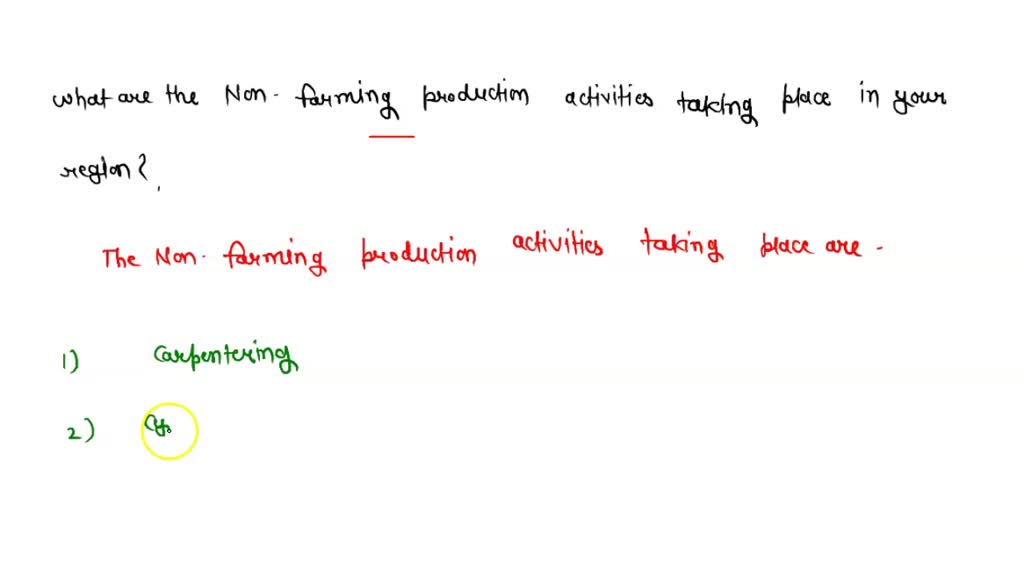 What are the Non- farming production activities taking place in your
region?,
The Non- farming production activities taking place are -
1) Carpentering
2)